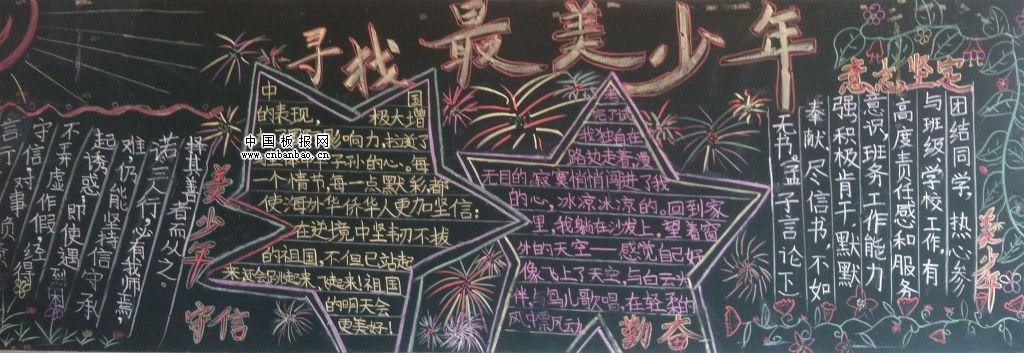 寻找最美少年
中国板报网
www.cnbanbao.cn
择其善者而从之。
诺三人行,必有我师焉,
难,仍能坚持信守承
起诱惑,即使遇到困
不弄虚作假,经得
守信,对事负责
言行
美少年
守信
中国
的表现, 极大增
影响力,拉近了
子孙的心。每
一个情节,每一点默彩都
使海外华侨华人更加坚信:
在逆境中坚韧不拔
的祖国,不但已站起
来
祖国
的明天会
更美好!
我独自在
路边走着,漫
无目的,寂寞悄悄闯进了我
的心,冰凉冰凉的。回到家
里,我躺在沙发上,望着窗
外的天空——感觉自己好
像飞上了天空,与白云为
伴,与鸟儿歌唱,在轻柔的
风中飘动
勤奋
意志坚定
团结同学,热心参
与班级、学校工作,有
高度责任感和服务
意识,班务工作能力
强,积极肯干,默默
奉献,尽信书,不如
无书。(孟子言论下)
美少年